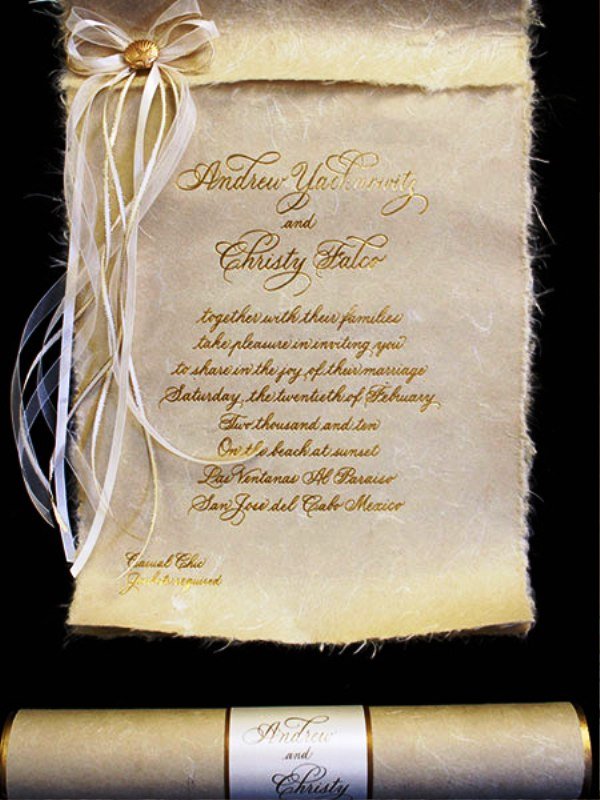 Andrew Yachnowitz
and
Christy Falco
together with their families
take pleasure in inviting you
to share in the joy of their marriage
Saturday, the twentieth of February
Two thousand and ten
On the beach at sunset
Las Ventanas Al Paraiso
San Jose del Cabo Mexico
Casual Chic
Jackets required
Andrew
and
Christy